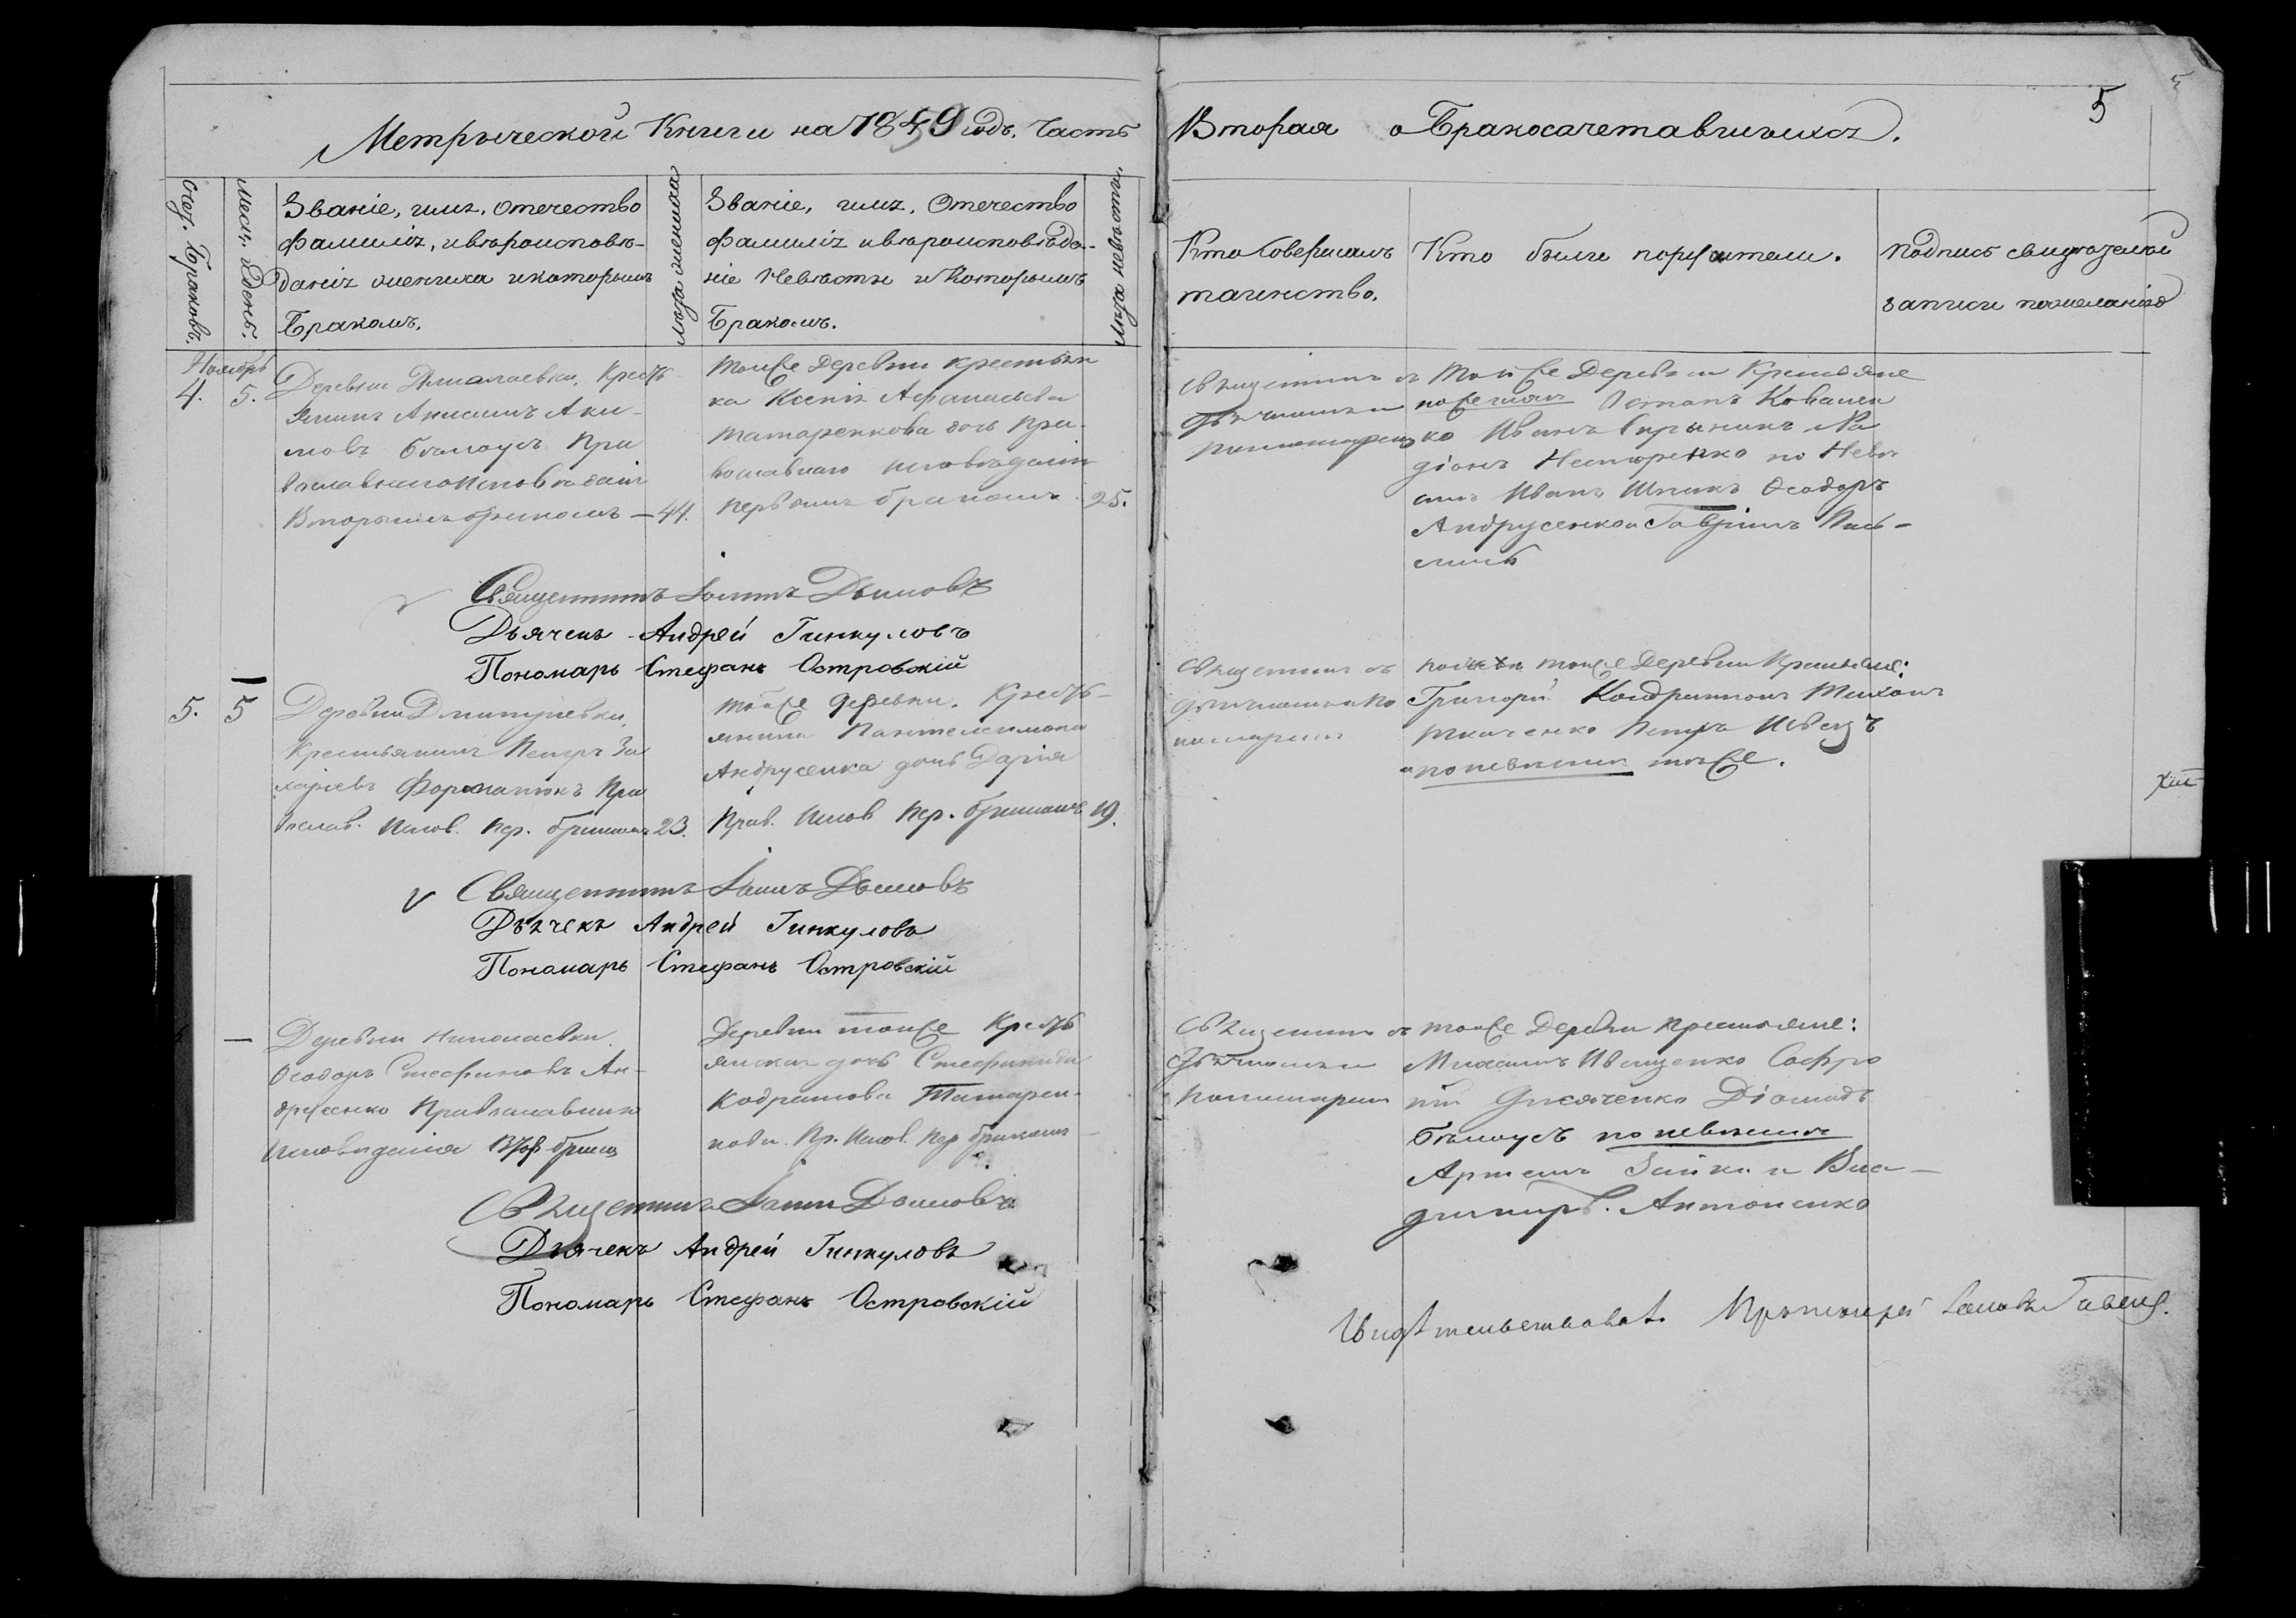 5
5
Метрической Книги на 1859 годъ. Часть
Вторая о Бракосачетавшихся.
Счет. Браковъ.
Месяц. и День.
Званіе, имя, отечество
фамилія, и вѣроисповѣ-
данія жениха и которымъ
Бракомъ.
Лѣта жениха
Званіе, имя, Отечество
фамилія и вѣроисповѣда-
ніе Невѣсты и Которымъ
Бракомъ.
Лѣта невѣсты.
Кто Совершалъ
таинство.
Кто были поручители.
Подпись свидѣтелей
записи по желанію
Ноябрь
4. 5. Деревни Кресть
янинъ Аки-
мовъ Бѣлоусъ Пра
вославнаго Исповѣданія
Вторымъ бракомъ — 44.
Тойже Деревни крестьян
ка Ксенія Афанасьева
Татаренкова дочь Пра-
вославнаго исповѣданія
первымъ бракомъ 25.
Священникъ съ
дьячкомъ и
пономаремъ
Той же Деревни Крестьяне
по женихѣ Остапъ Ковален
ко Иванъ
Нестеренко по Невѣ
стѣ Иванъ Шпакъ Ѳеодоръ
Андрусенко и Гавріилъ
Священникъ Іоаннъ Дымовъ
Дьячекъ Андрей Гинкуловъ
Пономарь Стефанъ Островскій
5. 5 Деревни Дмитріевки,
Крестьянинъ Петръ За
харіевъ Форманюкъ Пра
вослав. Испов. Пер. бракомъ 23.
тойже деревни. Кресть-
янина Пантелеимона
Андрусенка дочь Дарія
Прав. Испов. Пер. бракомъ 19.
Священникъ съ
дьячкомъ и по
номаремъ
тойже Деревни Крестьяне:
Григорій Тихонъ
Ткаченко Петръ Швецъ
а по невѣстѣ тѣже.
Священникъ Іоаннъ Дымовъ
Дьячекъ Андрей Гинкуловъ
Пономарь Стефанъ Островскій
— Деревни Николаевки.
Ѳеодоръ Стефановъ Ан-
друсенко Православнаго
Исповѣданія Втор. брак
Деревни тойже Кресть
янская дочь Стефанида
Кодратова Татарен-
кова. Пр. Испов. Пер бракомъ
Священникъ съ
дьячкомъ и
пономаремъ
тойже Деревни крестьяне:
Михаилъ Иващенко Софро
ній Діомидъ
Бѣлоусъ по невѣстѣ
Артемъ Зайка и Вла-
димиръ. Антоненко
Священникъ Іоаннъ Дымовъ
Дьячекъ Андрей Гинкуловъ
Пономарь Стефанъ Островскій
Свидѣтельствовалъ Протоіерей